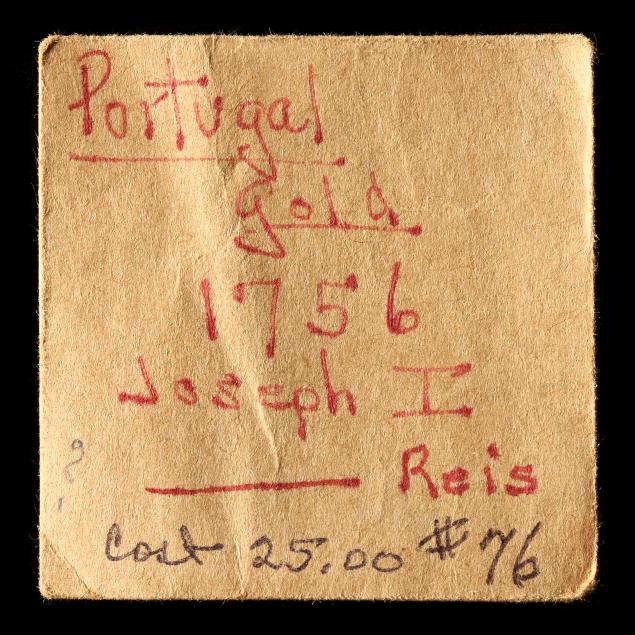 Portugal
Gold
1756
Joseph I
______ Reis
?
Cost 25.00 #76